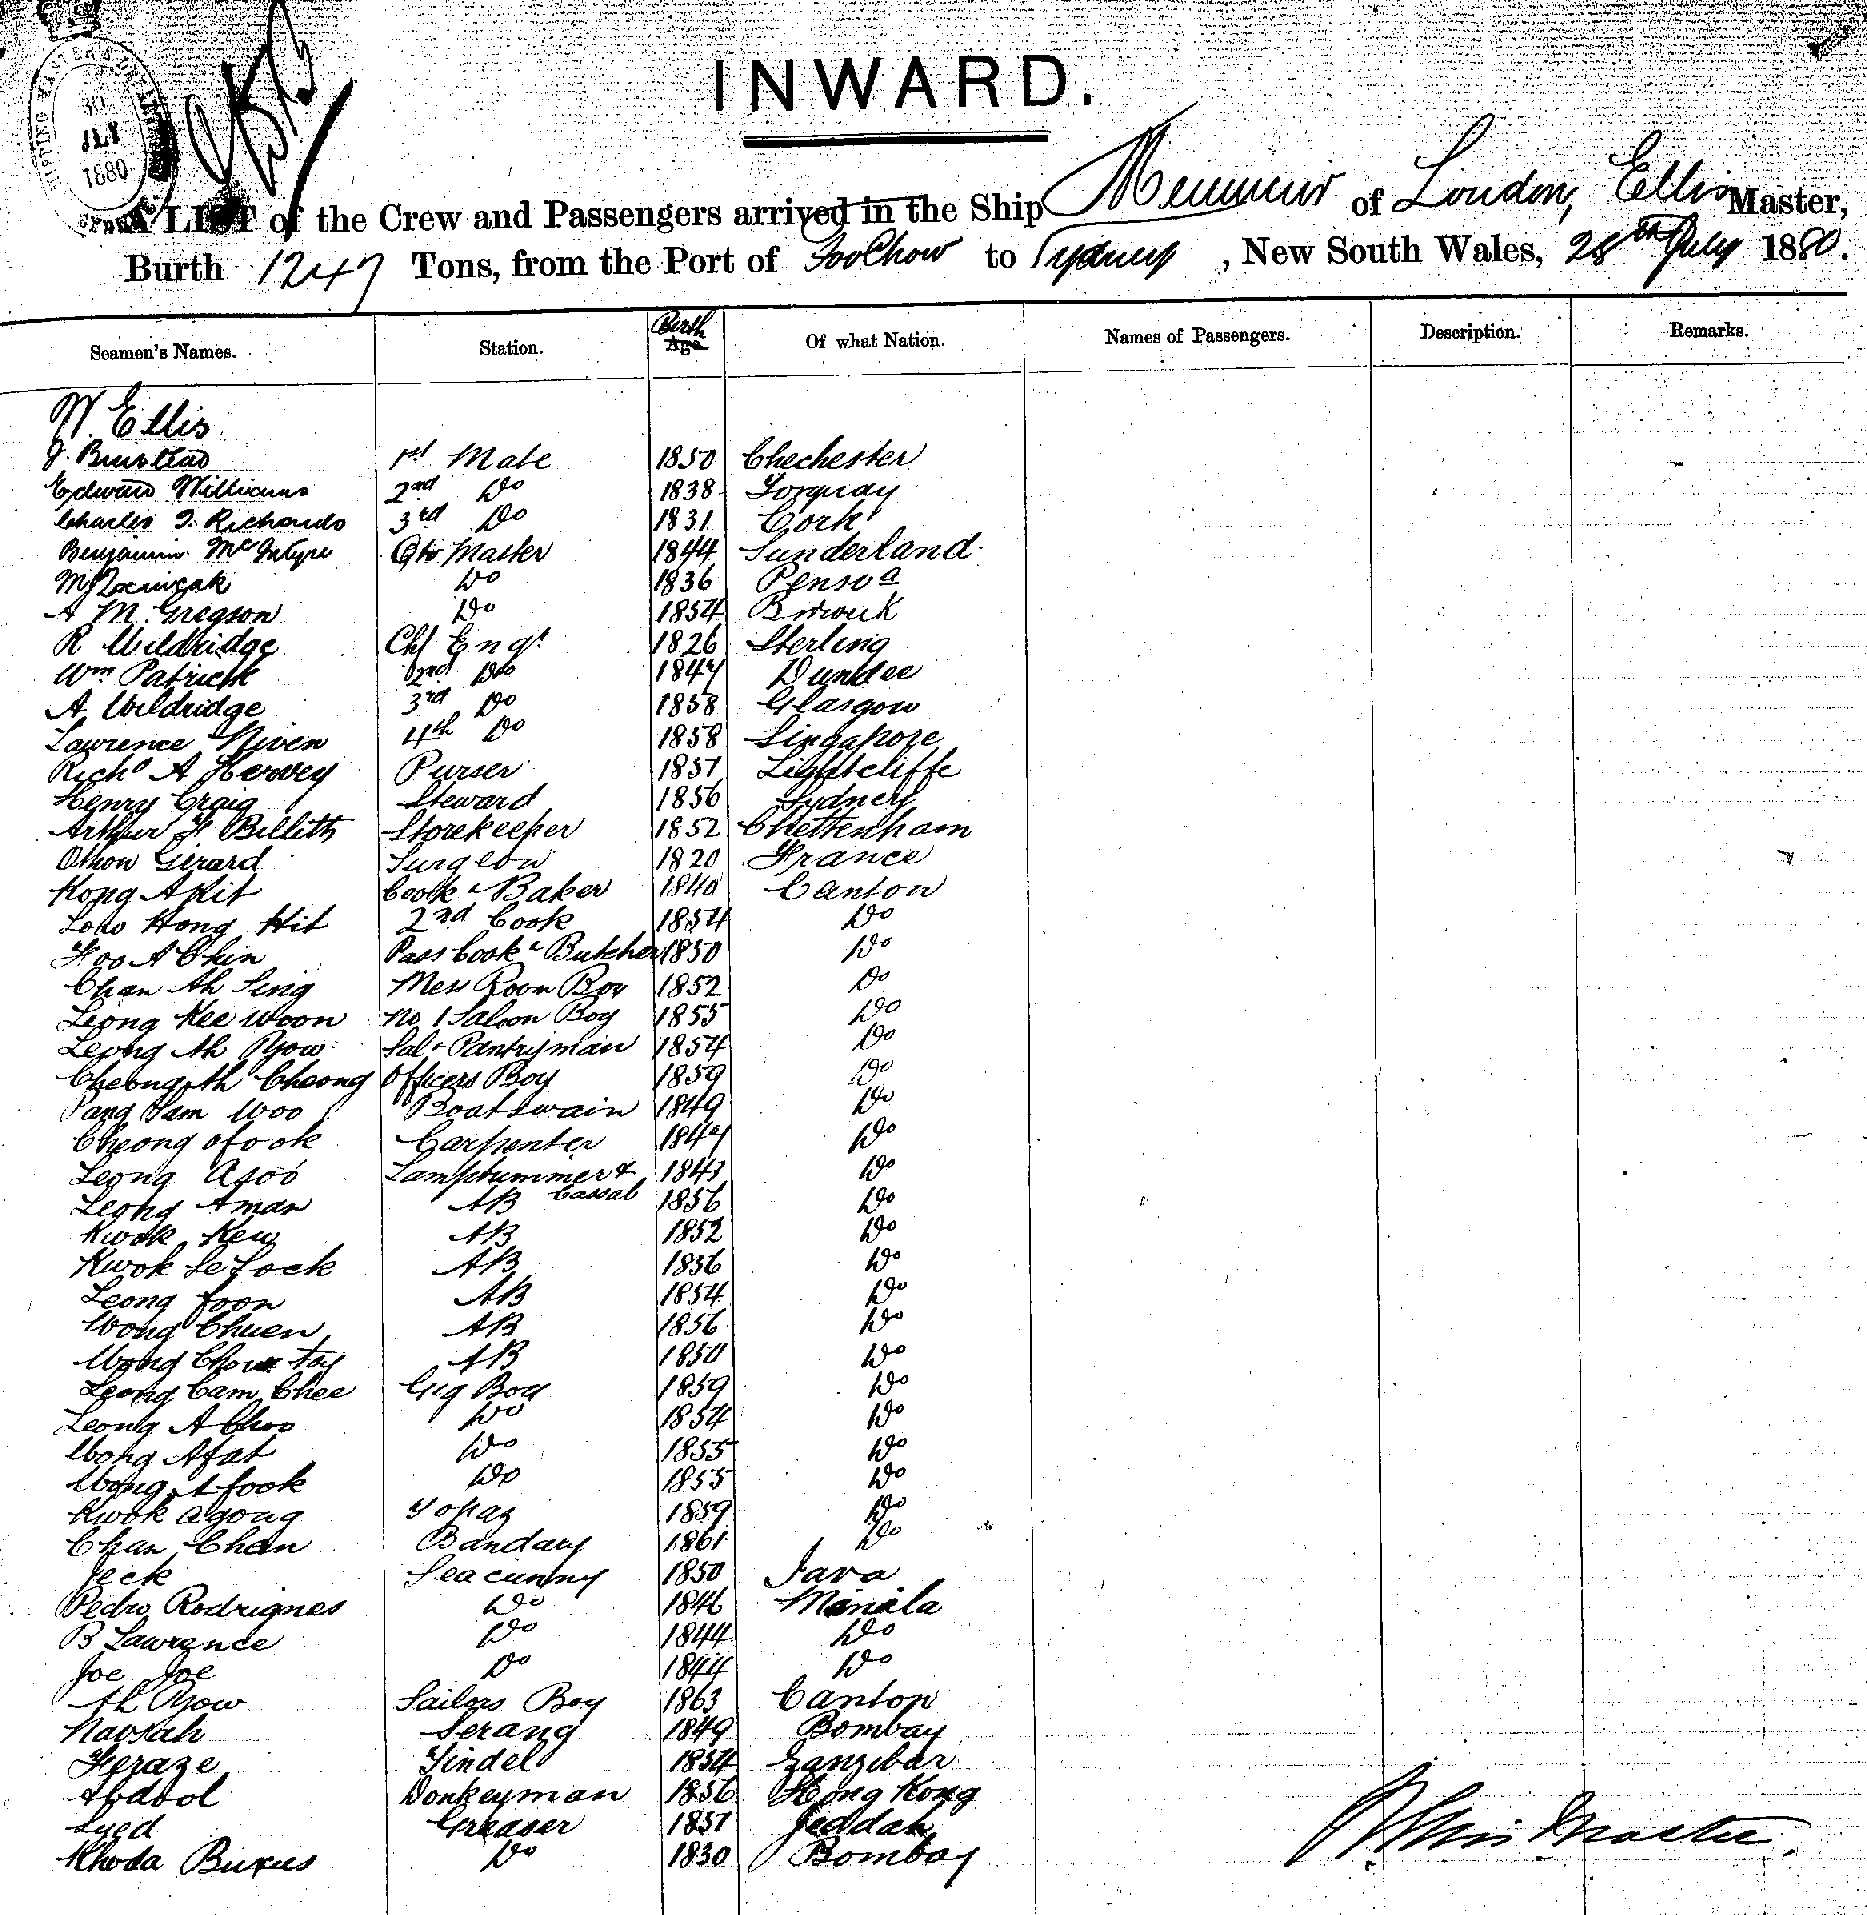 30
JLY
1880
INWARD.
A LIST of the Crew and Passengers arrived in the Ship Memnuir of London, Ellis Master,
Burth 1247 Tons, from the Port of FooChow to Sydney, New South Wales, 28th July 1880.
Seamen's Names. Station. Birth Age Of what Nation. Names of Passengers. Description. Remarks.
W. Ellis
J. 1st Mate 1850 Chechester
Edward Williams 2nd Do 1838 Torquay
Charles T. Richards 3rd Do 1831 Cork
Benjamin McIntyre Qtr Master 1844 Sunderland
Do 1836
A M. Gregson Do 1854 Berwick
R Wildridge Chf Engr 1826 Sterling
Wm Patrick 2nd Do 1847 Dundee
A. Wildridge 3rd Do 1858 Glasgow
Lawrence Niven 4th Do 1858 Singapore
Richd A Hervey Purser 1857 Lightcliffe
Henry Craig Steward 1856 Sydney
Arthur F Storekeeper 1852 Cheltenham
Girard Surgeon 1820 France
Kong AKit Cook & Baker 1840 Canton
Low Hong Hit 2nd Cook 1854 Do
Foo AChin Pass Cook & Butcher 1850 Do
Chan Ah Sing Mess Room Boy 1852 Do
Leong Kee Woon No 1 Saloon Boy 1855 Do
Leong Ah Yow Sal. Pantryman 1854 Do
Cheong Ah Cheong Officers Boy 1859 Do
Pang Sam Woo Boatswain 1849 Do
Cheong Ofook Carpenter 1847 Do
Leong Asoo Lamptrimmer & 1843 Do
Cassab
Leong Aman AB 1856 Do
Kwok Kew AB 1852 Do
Kwok Se Lock AB 1836 Do
Leong foon AB 1854 Do
Wong Chuen AB 1856 Do
Wong Chow Tay AB 1850 Do
Leong Cam Chee Gig Boy 1859 Do
Leong AChoo Do 1854 Do
Wong Afat Do 1855 Do
Wong Afook Do 1855 Do
Kwok agong Topaz 1859 Do
Chan Chan Bandary 1861 Do
Jeck Seacunny 1850 Java
Pedro Rodrignes Do 1846 Manila
B Lawrence Do 1844 Do
Joe Joe Do 1844 Do
Ah Yow Sailors Boy 1863 Canton
Navsah Serang 1849 Bombay
Feraze Tindel 1854 Zanzibar
Abdool Donkeyman 1856 Hong Kong
Syed Greaser 1857 Jeddah
Khoda Buxus Do 1830 Bombay
W. Ellis Master